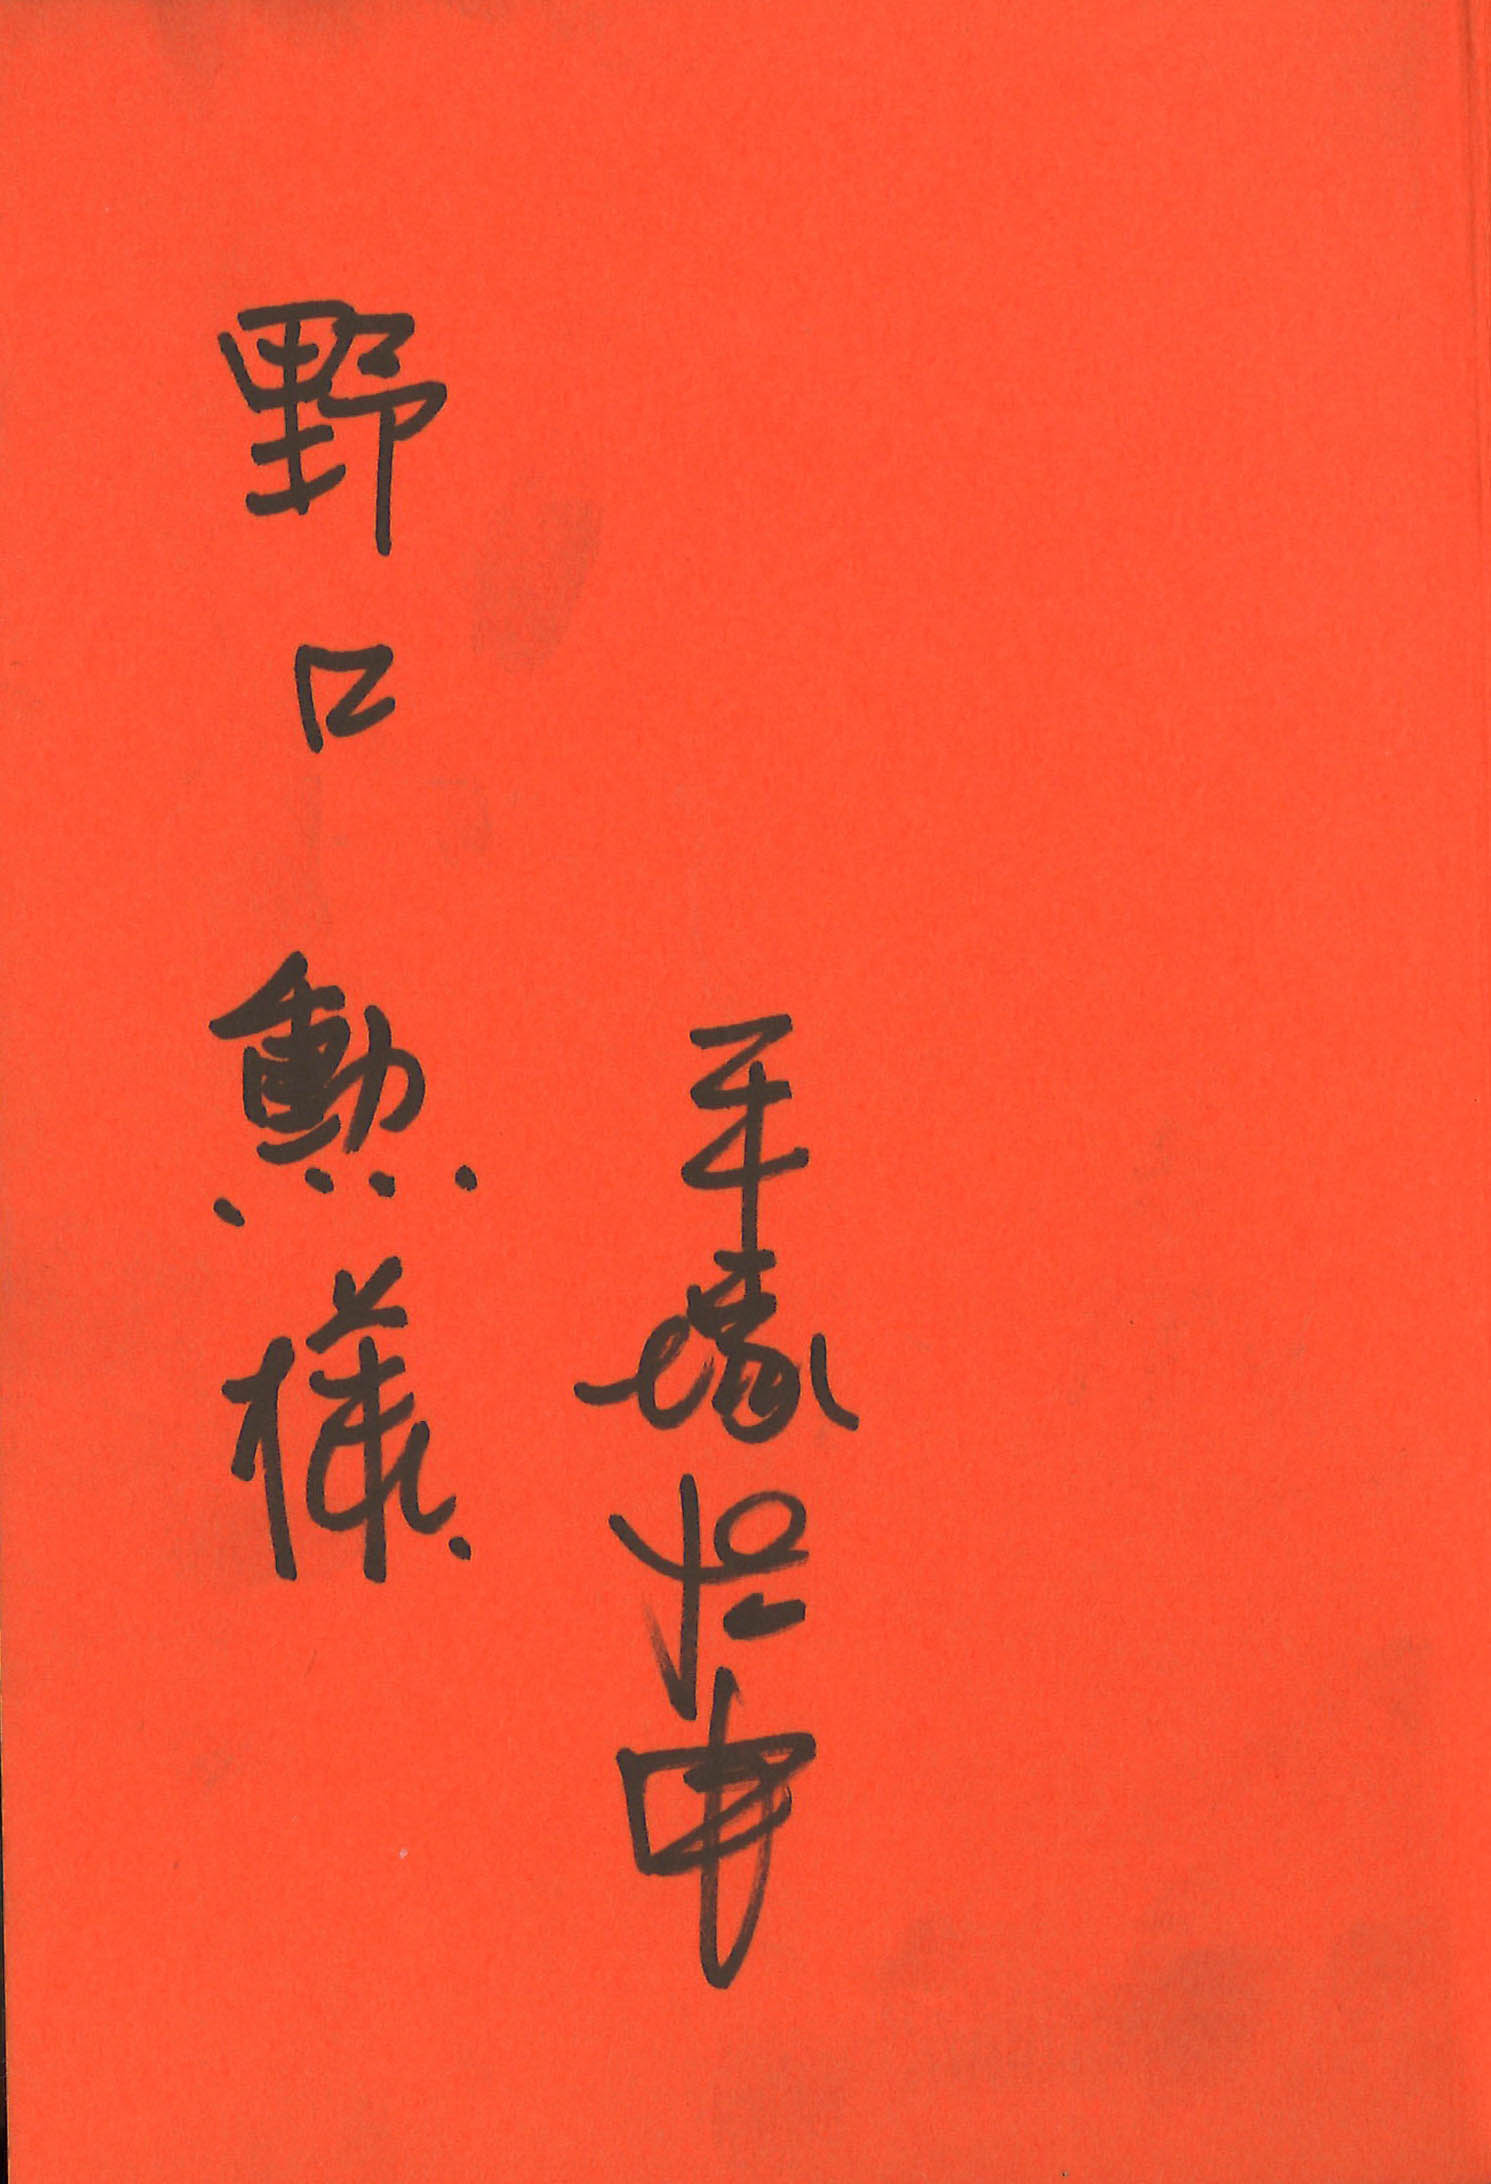 手塚治虫
野口勲様